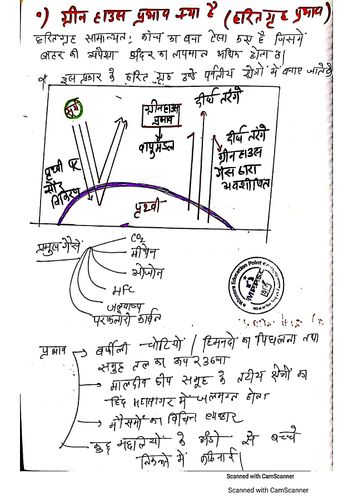 ग्रीन हाउस प्रभाव क्या है (हरितगृह प्रभाव)
हरितगृह सामान्यतः काँच का बना ऐसा कक्ष है जिसमें
बाहर की अपेक्षा अंदर का तापमान अधिक होता है।
इस प्रकार के हरित गृह ठण्डे पर्वतीय क्षेत्रों में बनाए जाते हैं
सूर्य
ग्रीनहाउस
प्रभाव
वायुमंडल
दीर्घ तरंगे
दीर्घ तरंगे
ग्रीन हाउस
गैस द्वारा
अवशोषित
पृथ्वी पर
सौर
विकिरण
पृथ्वी
प्रमुख गैसें
CO2
मीथेन
ओजोन
HFC
जलवाष्प
कार्बन
प्रभाव
बर्फीली चोटियों / हिमनदों का पिघलना तथा
समुद्र तल का ऊपर उठना
मालदीव द्वीप समूह के तटीय क्षेत्रों का
हिंद महासागर में जलमग्न होना
मौसमों का विचित्र व्यवहार
कुछ मछलियों के अंडों से बच्चे
निकलने में
Education Point
Scanned with CamScanner
Scanned with CamScanner